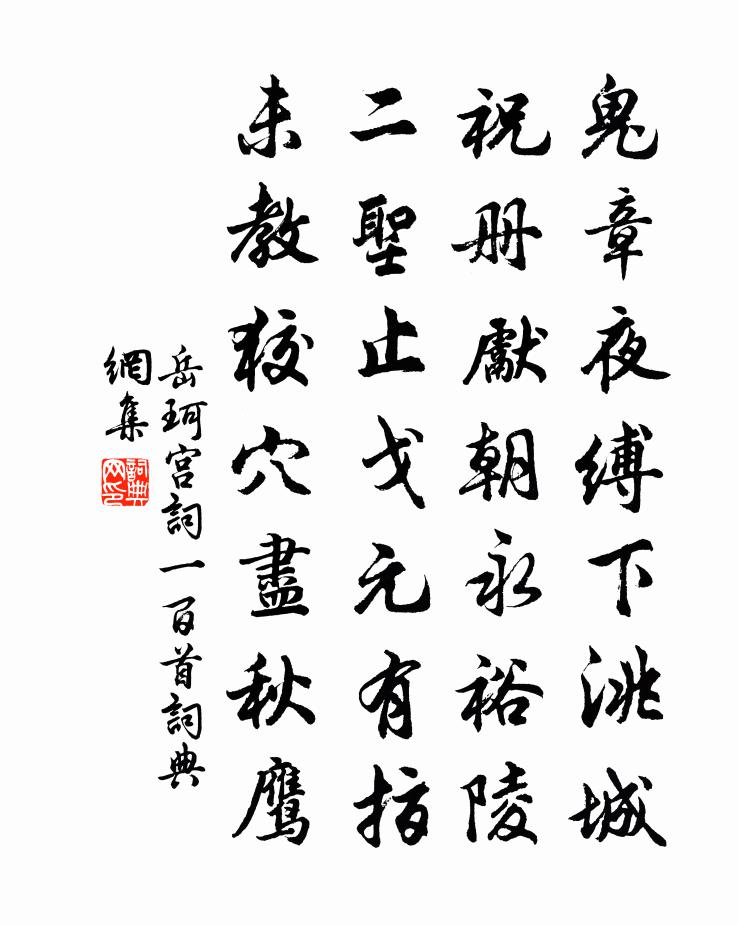 鬼章夜縛下洮城
祝册獻朝永裕陵
二聖止戈元有指
未教狡穴盡秋鹰
岳珂宫詞一百首詞典
網集
詞典
网印